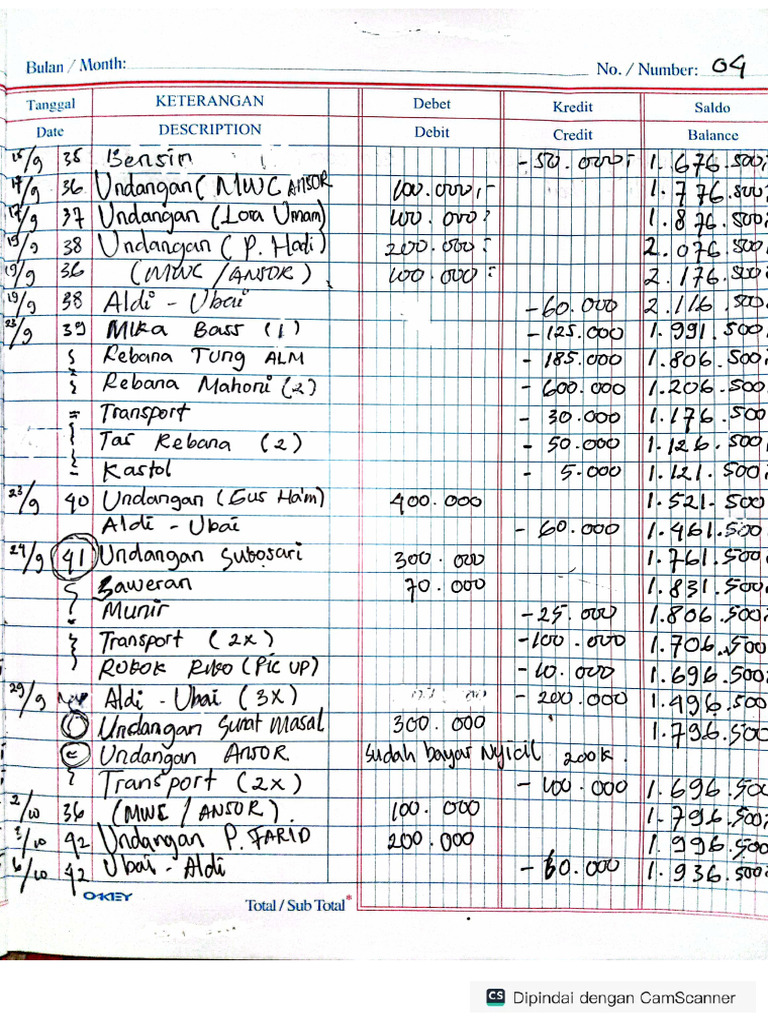 Bulan / Month: No. / Number: 04
Tanggal KETERANGAN Debet Kredit Saldo
Date DESCRIPTION Debit Credit Balance
15/9 35 Bensin - 50.000,- 1.676.500,-
17/9 36 Undangan ( MWC ANSOR 100.000,- 1.776.500,-
17/9 37 Undangan (Lora Umam) 100.000,- 1.876.500,-
19/9 38 Undangan ( P. Hadi) 200.000,- 2.076.500,-
19/9 36 (MWC / ANSOR ) 100.000,- 2.176.500,-
19/9 38 Aldi - Ubai - 60.000 2.116.500,-
23/9 39 Mika Bass (1) - 125.000 1.991.500,-
Rebana Tung ALM - 185.000 1.806.500,-
Rebana Mahoni (2) - 600.000 1.206.500,-
Transport - 30.000 1.176.500
Tas Rebana (2) - 50.000 1.126.500,-
Kastol - 5.000 1.121.500,-
23/9 40 Undangan (Gus Ha'm) 400.000 1.521.500
Aldi - Ubai - 60.000 1.461.500
24/9 41 Undangan Subosari 300.000 1.761.500,-
Saweran 70.000 1.831.500,-
Munir - 25.000 1.806.500,-
Transport ( 2x ) - 100.000 1.706.500
ROKOK (Pic UP) - 10.000 1.696.500,-
29/9 Aldi - Ubai ( 3X ) - 200.000 1.496.500
Undangan Surat Masal 300.000 1.796.500
Undangan ANSOR Sudah bayar Nyicil 200K.
Transport (2x) - 100.000 1.696.500
2/10 36 (MWC / ANSOR ). 100.000 1.796.500,-
3/10 42 Undangan P. FARID 200.000 1.996.500
6/10 42 Ubai - Aldi - 60.000 1.936.500,-
OKEY Total / Sub Total*
CS Dipindai dengan CamScanner